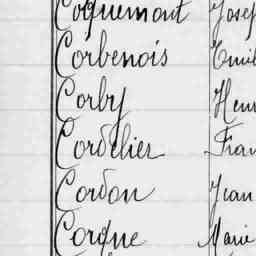 Coquemont Josep
Corbenois Emil
Corby Henr
Cordelier Fran
Cordon Jean
Corgne Marie